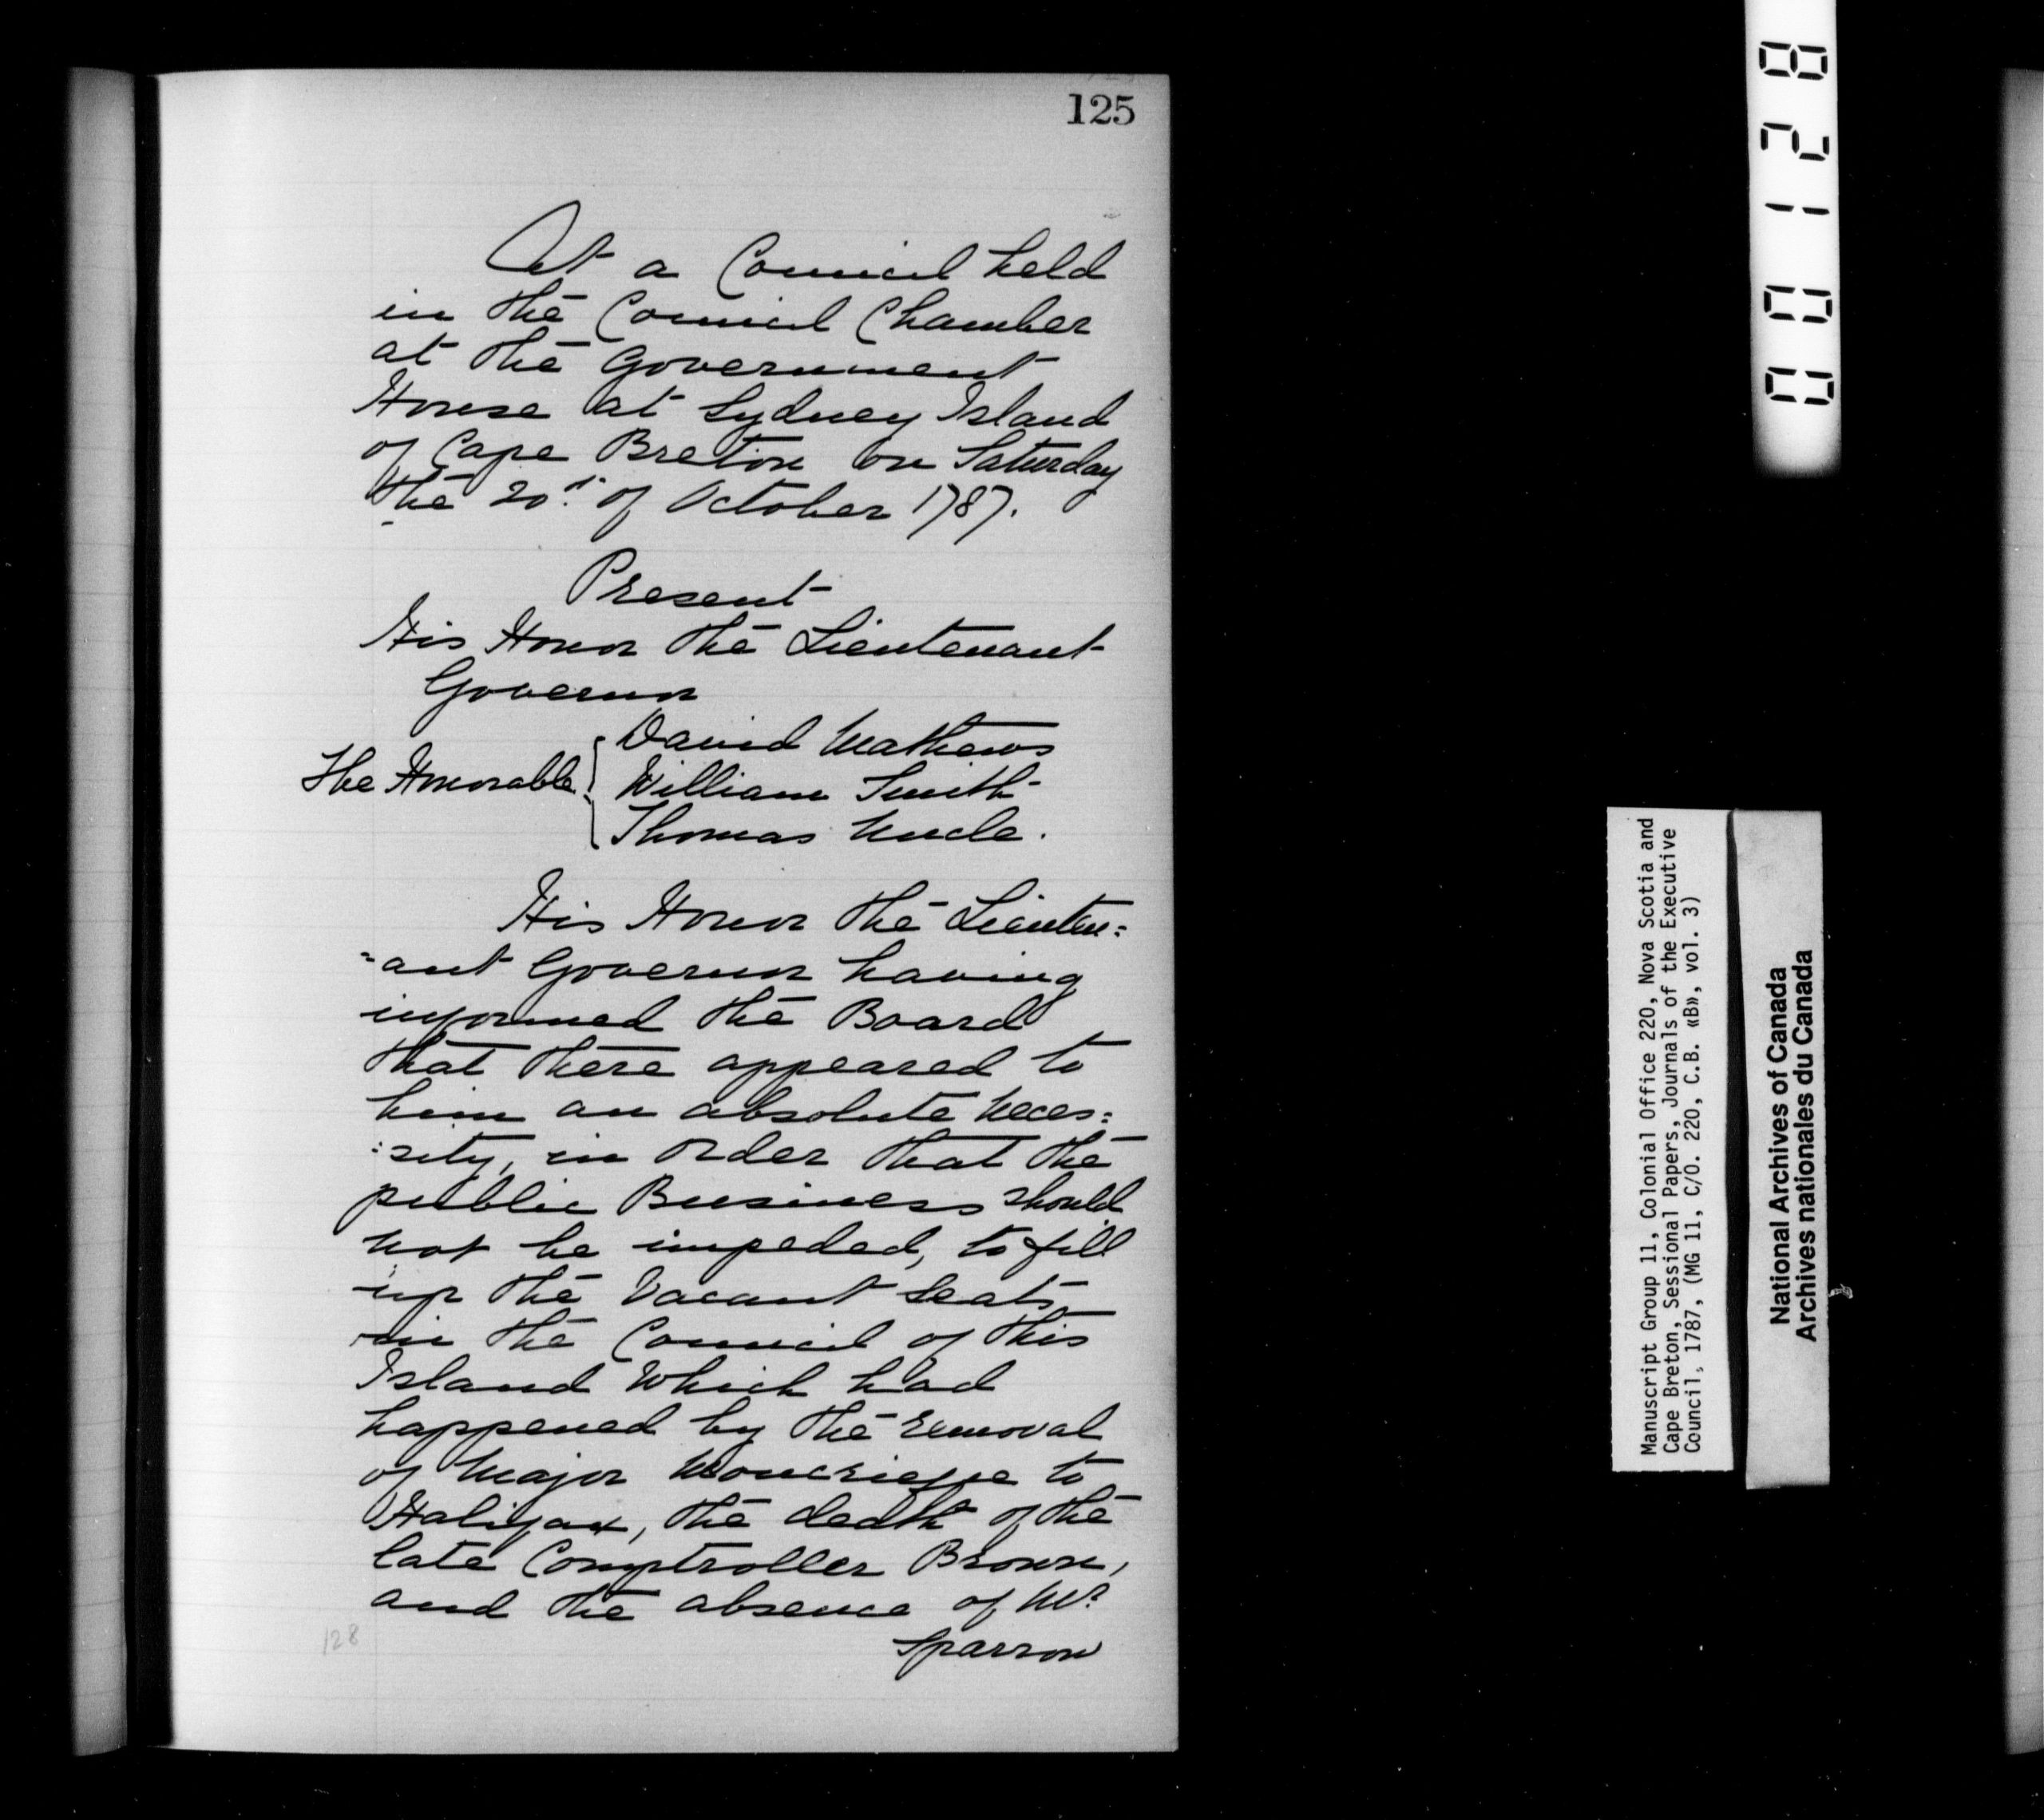 125
At a Council held
in the Council Chamber
at the Government
House at Sydney Island
of Cape Breton on Saturday
the 20th of October 1787.
Present
His Honor the Lieutenant
Governor
The Honorable { David Mathews
William Smith
Thomas Uncle.
His Honor the Lieuten=
=ant Governor having
informed the Board
that there appeared to
him an absolute Neces=
=sity, in order that the
public Business should
not be impeded, to fill
up the Vacant Seats
in the Council of this
Island Which had
happened by the removal
of Major Moncrieffe to
Halifax, the death of the
late Comptroller Brown,
and the absence of Mr
Sparrow
128
00128
Manuscript Group 11, Colonial Office 220, Nova Scotia and
Cape Breton, Sessional Papers, Journals of the Executive
Council, 1787, (MG 11, C/O. 220, C.B. «B», vol. 3)
National Archives of Canada
Archives nationales du Canada